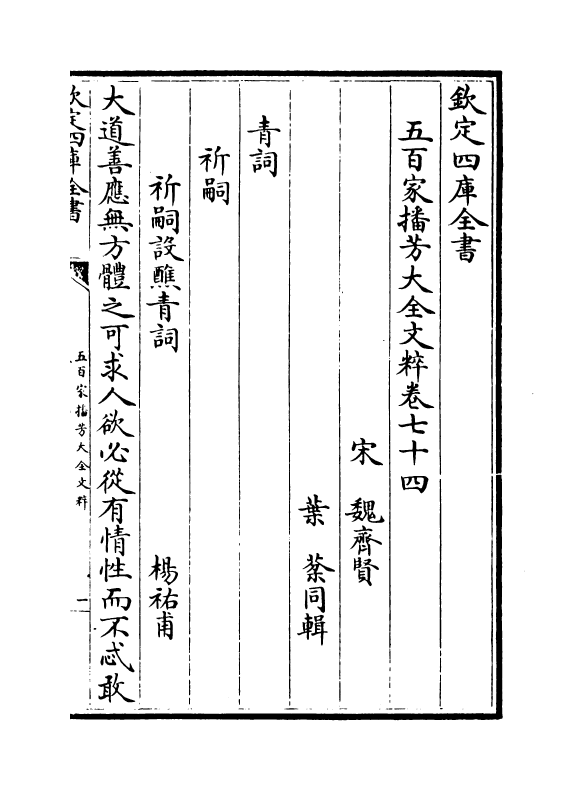 欽定四庫全書
五百家播芳大全文粹卷七十四
宋 魏齊賢
葉 棻同輯
青詞
祈嗣
祈嗣設醮青詞 楊祐甫
大道善應無方體之可求人欲必從有情性而不忒敢
欽定四庫全書
五百家播芳大全文粹
一